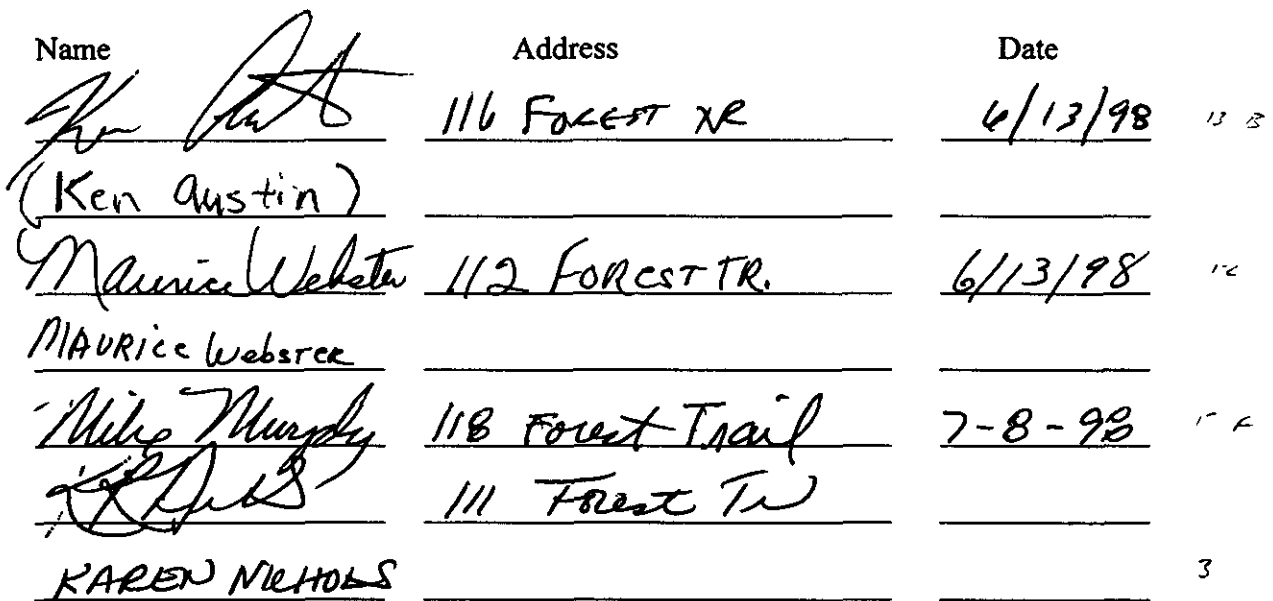 Name Address Date
116 FOREST TR 6/13/98 13 13
(Ken Austin)
Maurice Webster 112 FOREST TR. 6/13/98
MAURICE Webster
Mike Murphy 118 Forest Trail 7-8-98
111 Forest Tr
KAREN NICHOLS 3